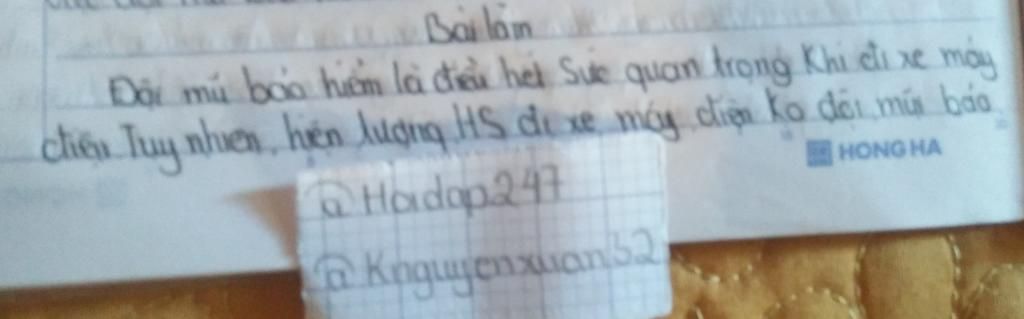 Bài làm
Đội mũ bảo hiểm là điều hết sức quan trọng khi đi xe máy
điện. Tuy nhiên, hiện tượng HS đi xe máy điện ko đội mũ bảo
HONG HA
@Hoidap247
@Knguyenxuan32